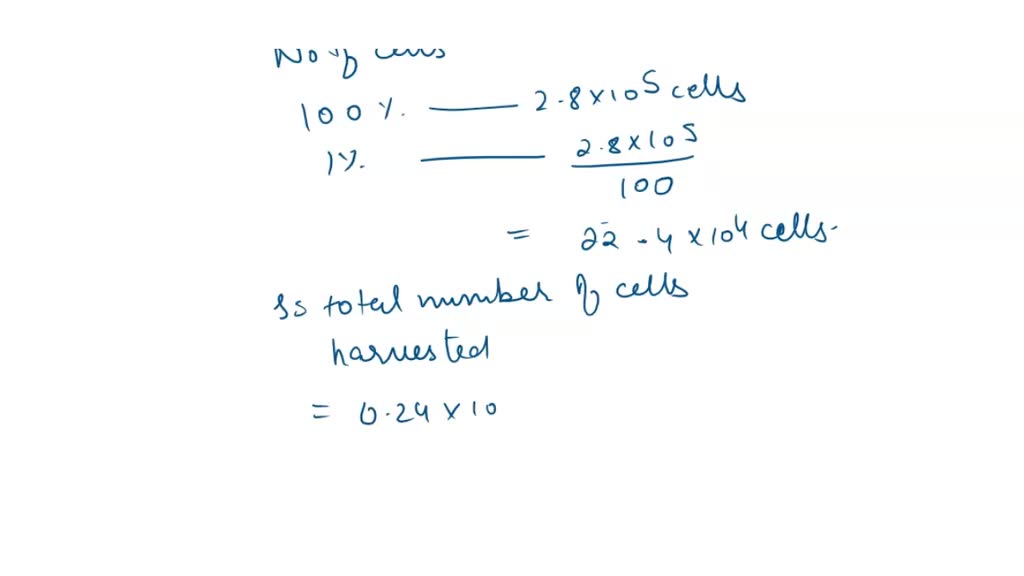 No of cells
100 %. —— 2.8×10⁵ cells
1%. —— 2.8×10⁵
100
= 22.4×10⁴ cells.
So total number of cells
harvested
= 0.24×10